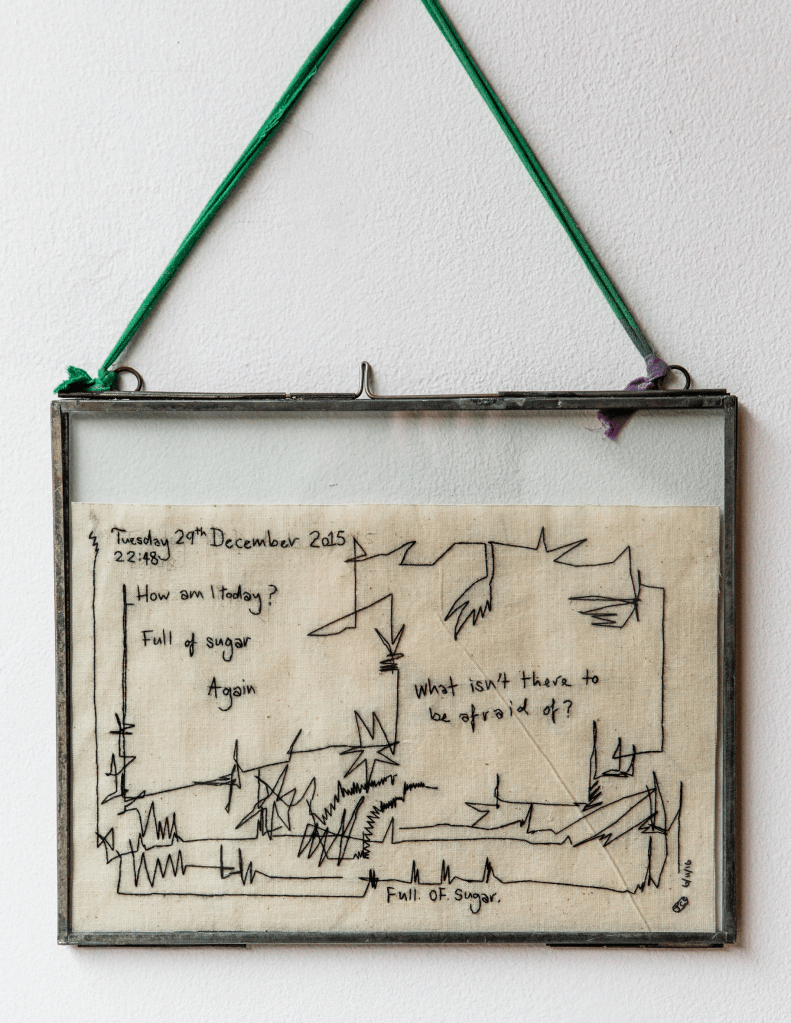 Tuesday 29th December 2015
22:48
How am I today?
Full of sugar
Again
What isn't there to
be afraid of?
Full. OF. Sugar.